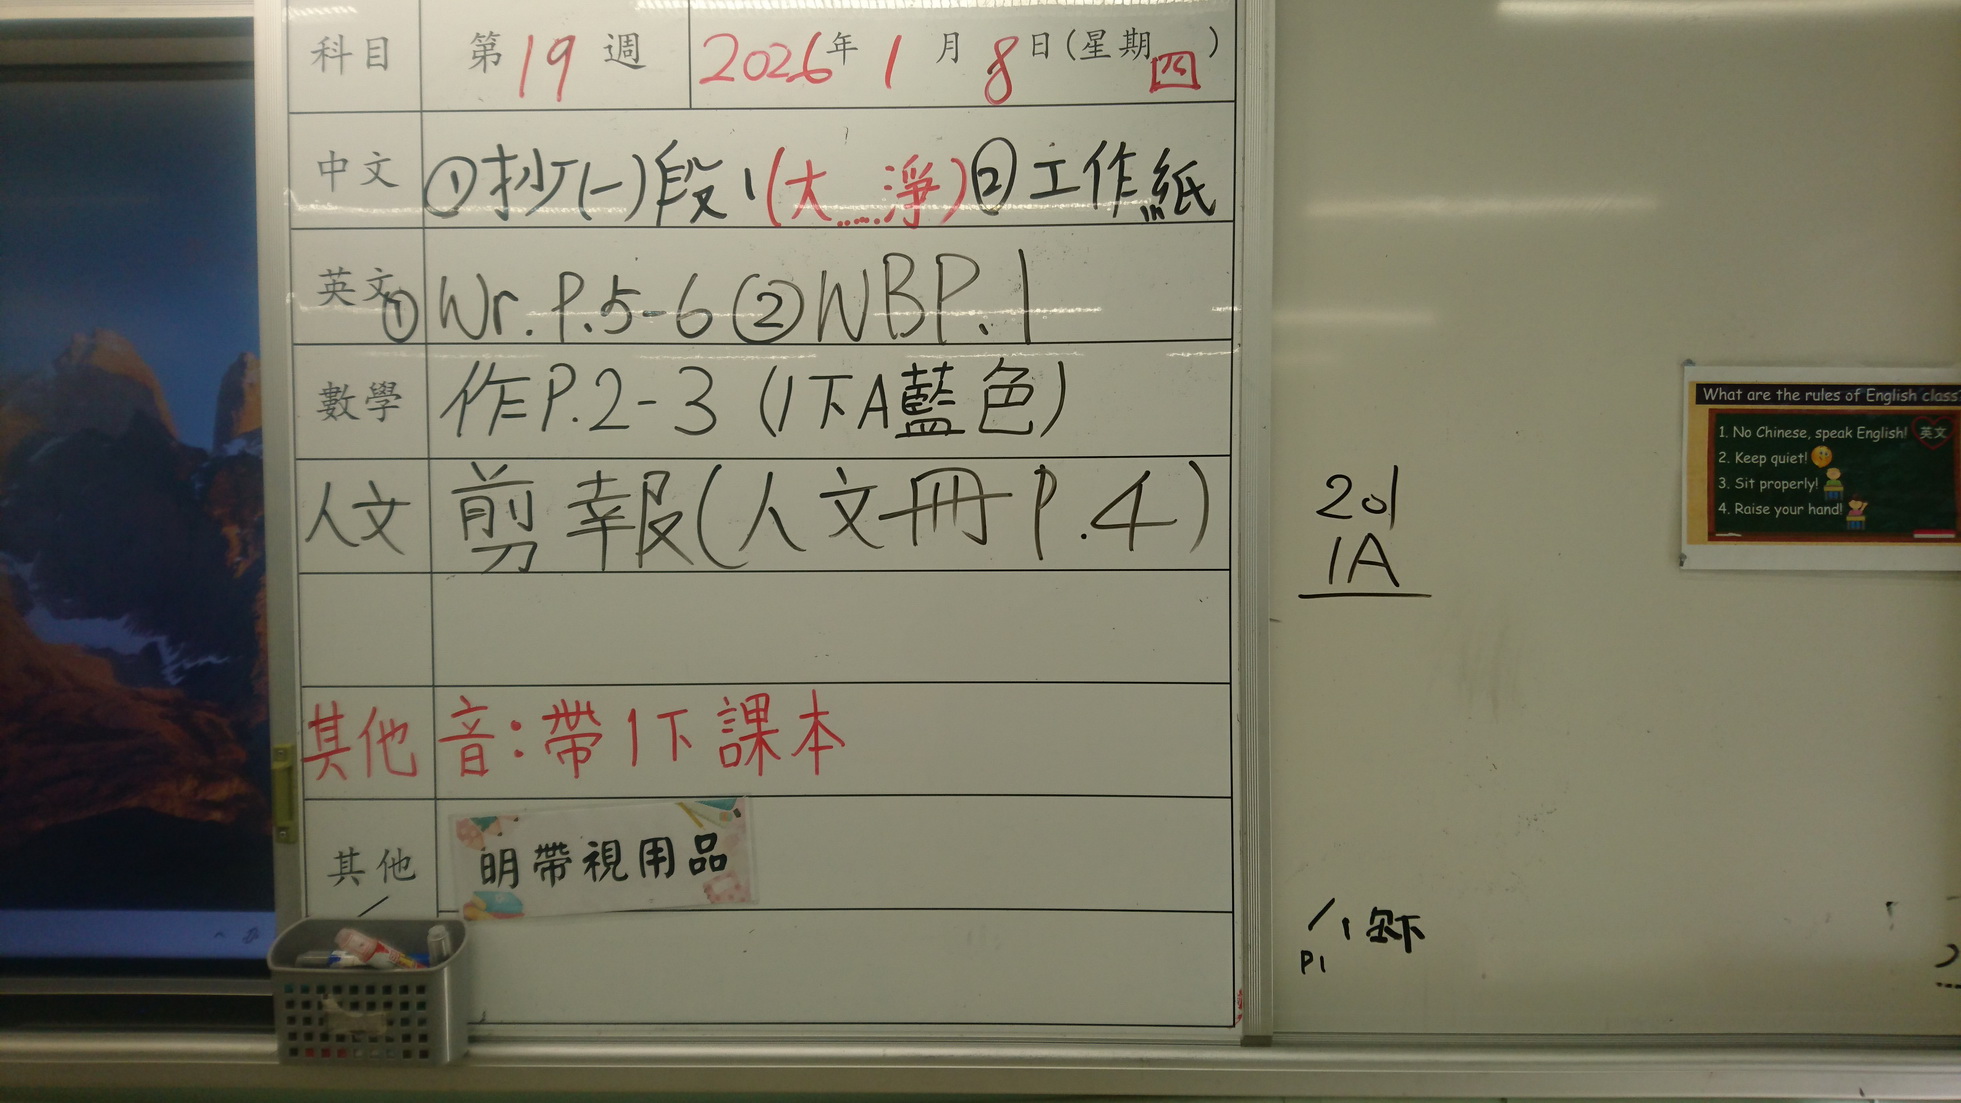 科目 第19週 2026年1月8日(星期四)
中文 ①抄(一)段1(大......淨)②工作紙
英文 ①Wr.P.5-6②WBP.1
數學 作P.2-3(1下A藍色)
人文 剪報(人文冊P.4)
其他 音:帶1下課本
其他 明帶視用品
201
1A
P1
What are the rules of English class
1. No Chinese, speak English! 英文
2. Keep quiet!
3. Sit properly!
4. Raise your hand!